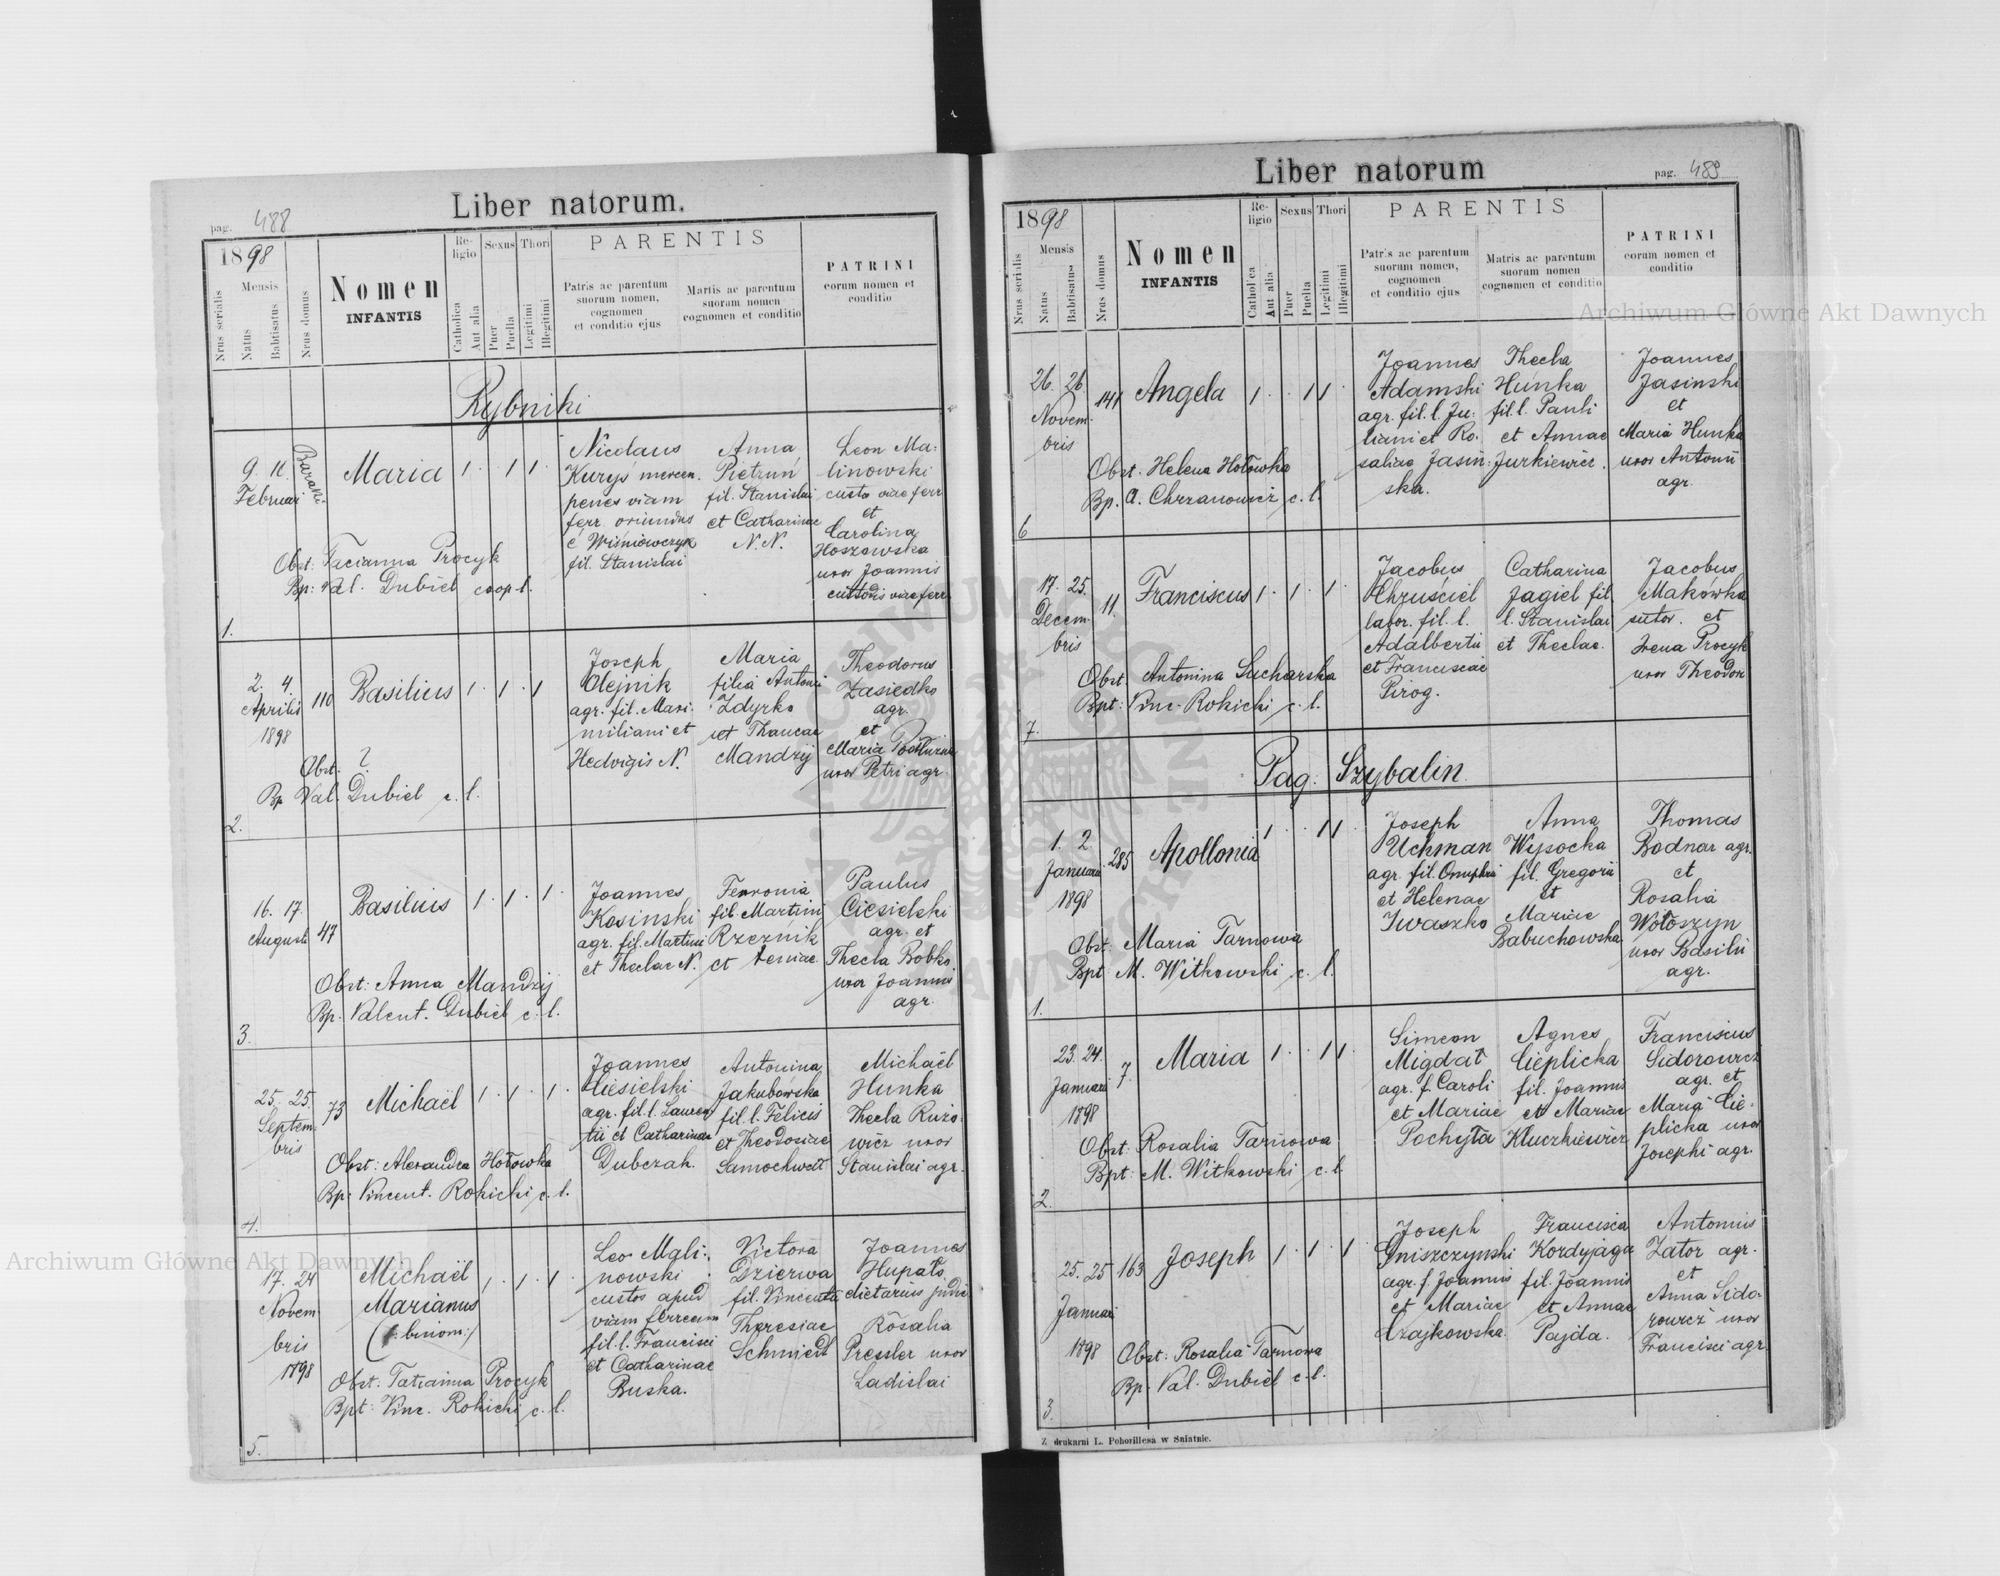 Liber natorum.
pag. 488
1898
Nrus serialis
Mensis
Natus
Babtisatus
Nrus domus
Nomen
INFANTIS
Religio
Catholica
Aut alia
Sexus
Puer
Puella
Thori
Legitimi
Illegitimi
PARENTIS
Patris ac parentum
suorum nomen,
cognomen
et conditio ejus
Martis ac parentum
suorum nomen
cognomen et conditio
PATRINI
eorum nomen et
conditio
Rybniki
1.
9. 11.
Februari
Barak.
Maria
1 . 1 1 .
Nicolaus
Kuryś mercen.
penes viam
ferr. oriundus
e Wiśniowczyk
fil. Stanislai
Anna
Pietrun
fil. Stanislai
et Catharinae
N. N.
Leon Ma-
linowski
custos viae ferr
et
Carolina
Hoszowska
uxor Joannis
custodis viae ferr.
Obst: Tacianna Procyk
Bp: Val. Dubiel coop. l.
2.
2. 4.
Aprilis
1898
110
Basilius
1 . 1 . 1
Joseph
Olejnik
agr. fil. Maxi-
miliani et
Hedvigis N.
Maria
filia Antonii
Zdyrko
et
Mandzij
Theodorus
Zasiedko
agr.
et
Maria
uxor Petri agr
Obst. ?
Bp Val. Dubiel c. l.
3.
16. 17.
Augusti
47
Basilius
1 . 1 . 1 .
Joannes
Kosinski
agr. fil. Martini
et Theclae N.
Fenronia
fil. Martini
Rzeznik
et
Paulus
Ciesielski
agr. et
Thecla Bobko
uxor Joannis
agr.
Obst: Anna Mandzij
Bp. Valent. Dubiel c. l.
4.
25. 25.
Septem-
bris
73
Michaël
1 . 1 . 1 .
Joannes
Ciesielski
agr. fil. l. Lauren
tii et Catharinae
Dubczak.
Antonina
Jakubowska
fil. l. Felicis
et Theodosiae
Samochwał
Michaël
Hunka
Thecla Ruzo-
wicz uxor
Stanislai agr.
Obst: Alexandra Hołowka
Bp: Vincent. Rokicki c. l.
5.
17. 24
Novem-
bris
1898
Michaël
Marianus
(: binom:)
1 . 1 . 1
Leo Mali-
nowski
custos apud
viam ferream
fil. l. Francisci
et Catharinae
Buska.
Victora
Dzierwa
fil. Vincentii
Theresiae
Schmiedt
Joannes
Hupało
dietarius judic
Rosalia
Pressler uxor
Ladislai
Obst: Tatianna Procyk
Bpt: Vinc. Rokicki c. l.
Liber natorum
pag. 489
1898
Nrus serialis
Mensis
Natus
Babtisatus
Nrus domus
Nomen
INFANTIS
Religio
Catholica
Aut alia
Sexus
Puer
Puella
Thori
Legitimi
Illegitimi
PARENTIS
Patris ac parentum
suorum nomen,
cognomen
et conditio ejus
Matris ac parentum
suorum nomen
cognomen et conditio
PATRINI
eorum nomen et
conditio
6
26. 26
Novem-
bris
141
Angela
1 . . 1 1 .
Joannes
Adamski
agr. fil. l. Ju-
liani et Ro-
saliae Jasiń-
ska.
Thecla
Hunka
fil. l. Pauli
et Annae
Jurkiewicz.
Joannes
Jasinski
et
Maria Hunka
uxor Antonii
agr.
Obst. Helena Hołowka
Bp. A. Chrzanowicz c. l.
7.
17. 25.
Decem-
bris
11.
Franciscus
1 . 1 . 1 .
Jacobus
Chruściel
labor. fil. l.
Adalberti
et Franciscae
Pirog.
Catharina
Jagiel fil
l. Stanislai
et Theclae.
Jacobus
Makówka
sutor. et
Irena Procyk
uxor Theodori
Obst. Antonina Sucharska
Bpt: Vinc. Rokicki c. l.
Pag. Szybalin.
1.
1. 2.
Januarii
1898
285
Apollonia
1 . . 1 1
Joseph
Uchman
agr. fil. Onuphrii
et Helenae
Iwaszko
Anna
Wysocka
fil. Gregorii
et
Mariae
Babuchowska
Thomas
Bodnar agr.
et
Rosalia
Wołoszyn
uxor Basilii
agr.
Obst: Maria Tarnowa
Bpt M. Witkowski c. l.
2.
23. 24.
Januari
1898
7.
Maria
1 . . 1 1 .
Simeon
Migdał
agr. f. Caroli
et Mariae
Pochyła
Agnes
Cieplicka
fil. Joannis
et Mariae
Kluczkiewicz
Franciscus
Sidorowicz
agr. et
Maria Cie-
plicka uxor
Josephi agr.
Obst: Rosalia Tarnowa
Bpt: M. Witkowski c. l.
3.
25. 25
Januari
1898
163
Joseph
1 . 1 . 1
Joseph
Gniszczynski
agr. f. Joannis
et Mariae
Czajkowska.
Francisca
Kordyjaga
fil. Joannis
et Annae
Pajda.
Antonius
Zator agr.
et
Anna Sido-
rowicz uxor
Francisci agr
Obst: Rosalia Tarnowa
Bp. Val. Dubiel c. l.
Z drukarni L. Pohorillesa w Sniatnie.
Archiwum Główne Akt Dawnych
Archiwum Główne Akt Dawnych
ARCHIWUM GŁÓWNE AKT DAWNYCH